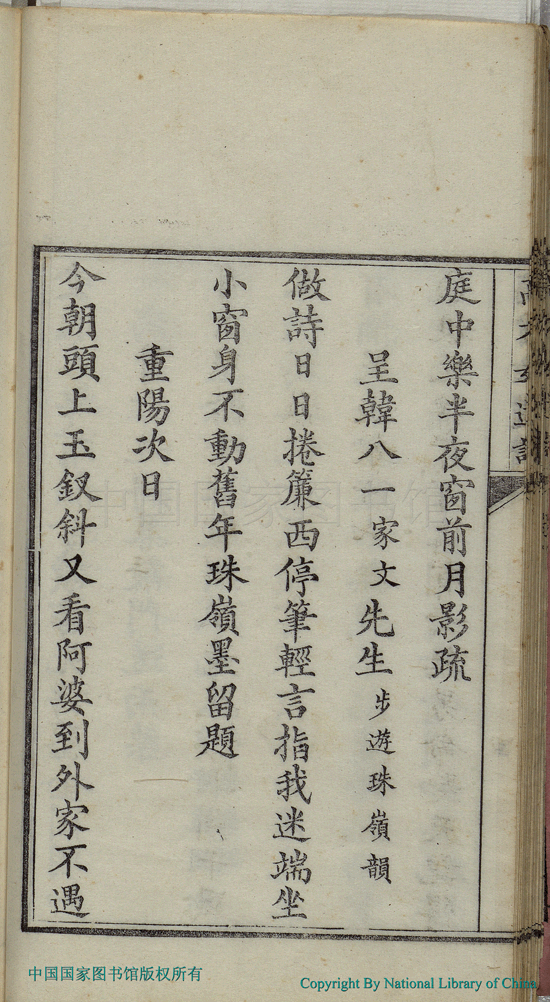 庭中樂半夜窗前月影疏
呈韓八一家文先生步遊珠嶺韻
做詩日日捲簾西停筆輕言指我迷端坐
小窗身不動舊年珠嶺墨留題
重陽次日
今朝頭上玉釵斜又看阿婆到外家不遇
中国国家图书馆
中国国家图书馆版权所有
Copyright By National Library of China